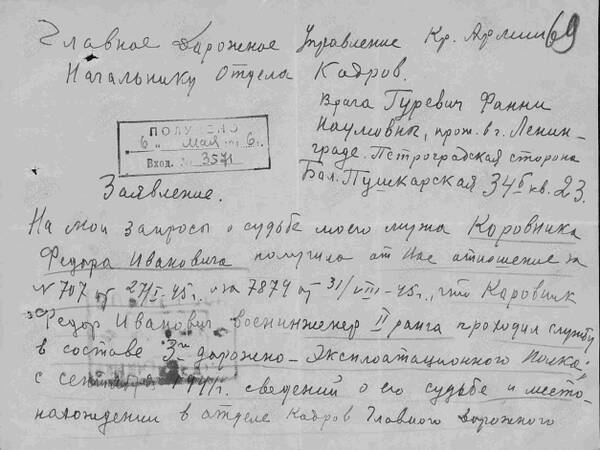 Главное Дорожное Управление Кр. Армии 69
Начальнику Отдела Кадров.
Врача Гуревич Фанни
Наумовны, прож. в г. Ленин-
граде. Петроградская сторона
Бол. Пушкарская 34б кв. 23.
ПОЛУЧЕНО
6 " мая 6г.
Вход. № 3571
Заявление.
На мои запросы о судьбе моего мужа Каровника
Федора Ивановича получила от Вас отношение за
№ 707 от 27/I-45г. и за 7874 от 31/VIII-45г., что Каровник
Федор Иванович воениженер II ранга проходил службу
в составе 3го дорожно-эксплоатационного полка,
с сентября 1941г. сведений о его судьбе и место-
нахождении в отделе Кадров Главного дорожного